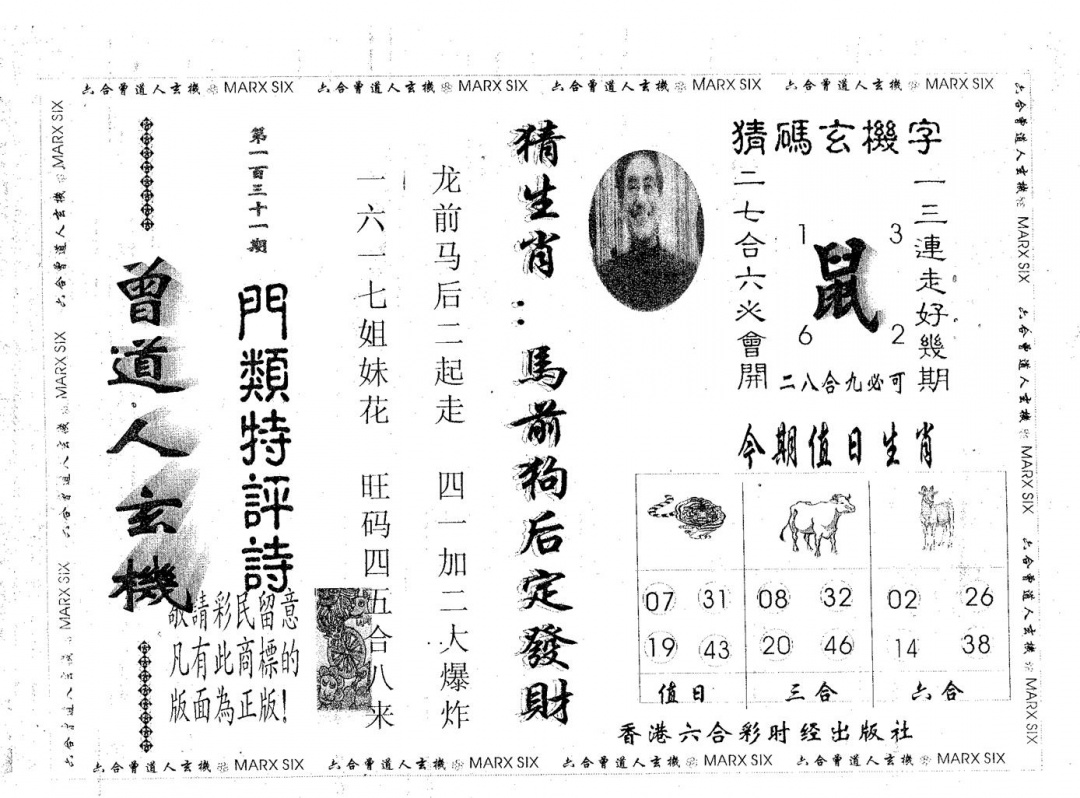 六合曾道人玄機 MARX SIX 六合曾道人玄機 MARX SIX 六合曾道人玄機 MARX SIX 六合曾道人玄機 MARX SIX
六合曾道人玄機 MARX SIX 六合曾道人玄機 MARX SIX 六合曾道人玄機 MARX SIX
猜碼玄機字
一三連走好幾期
二七合六必會開
1
3
鼠
6
2
二八合九必可
猜生肖：馬前狗后定發財
龙前马后二起走 四一加二大爆炸
一六一七姐妹花 旺码四五合八来
第一百三十一期
門類特評詩
曾道人玄機
敬請彩民留意
凡有此商標的
版面為正版！
今期值日生肖
07 31 08 32 02 26
19 43 20 46 14 38
值日 三合 六合
香港六合彩时经出版社
六合曾道人玄機 MARX SIX 六合曾道人玄機 MARX SIX 六合曾道人玄機 MARX SIX
六合曾道人玄機 MARX SIX 六合曾道人玄機 MARX SIX 六合曾道人玄機 MARX SIX 六合曾道人玄機 MARX SIX